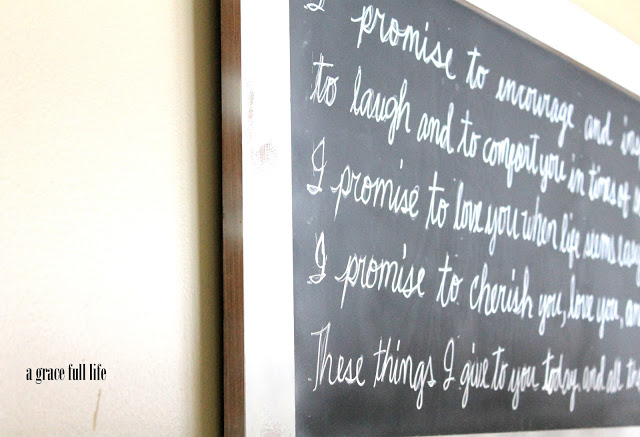 I promise to encourage and ins
to laugh and to comfort you in times of
I promise to love you when life seems easy
I promise to cherish you, love you, an
These things I give to you today, and all
a grace full life